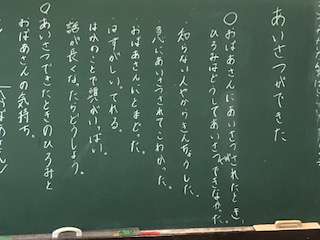 あいさつができた
○おばあさんにあいさつされたとき、
ひろみはどうしてあいさつできなかった
・知らない人だからきんちょうした
・急にあいさつされてこわかった。
・おばあさんにとまどった。
・はずかしい。てれる。
・ほかのことで頭がいっぱい
・話が長くなったらどうしよう。
○あいさつできたときのひろみと
おばあさんの気持ち。